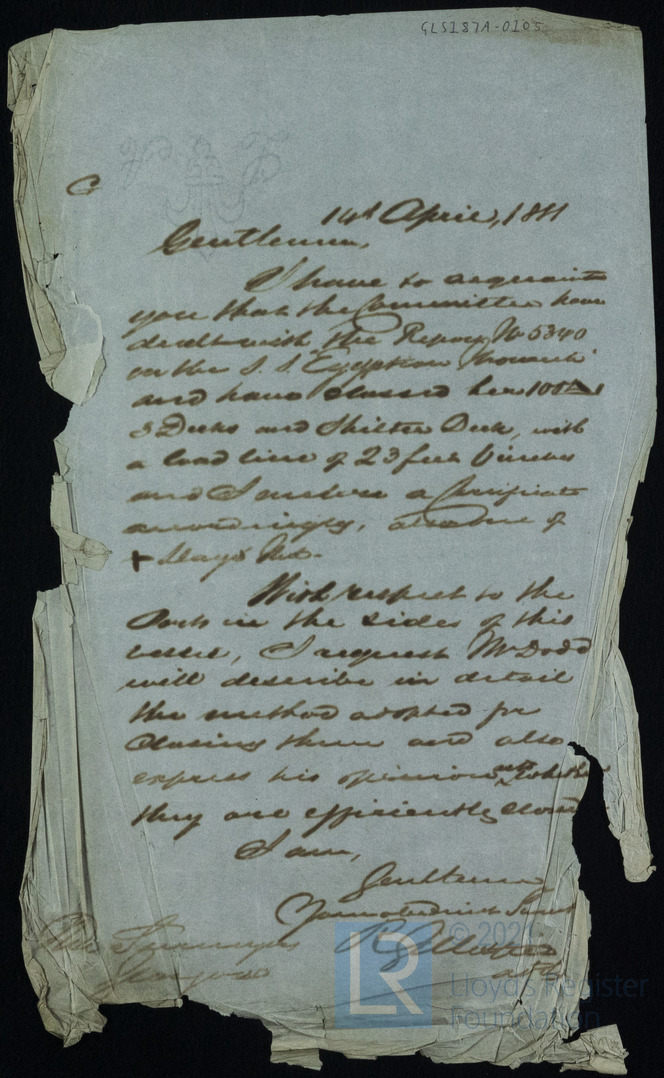 GLS187A-0105
C
14th April, 1881
Gentlemen,
I have to acquaint
you that the Committee have
dealt with the Report No 5340
on the S.S. "Egyptian Monarch"
and have classed her 100A1
3 Decks and Shelter Deck, with
a load line of 23 feet
and I enclose a Certificate
accordingly, also one of
+ Lloyds MC.
With respect to the
Ports in the sides of this
vessel, I request Mr Dodd
will describe in detail
the method adopted for
closing them and also
express his opinion as to whether
they are efficiently closed
I am,
Gentlemen
Your obedient Servt
The Surveyors
Glasgow
LR
© 202
Lloyd's Register
Foundation